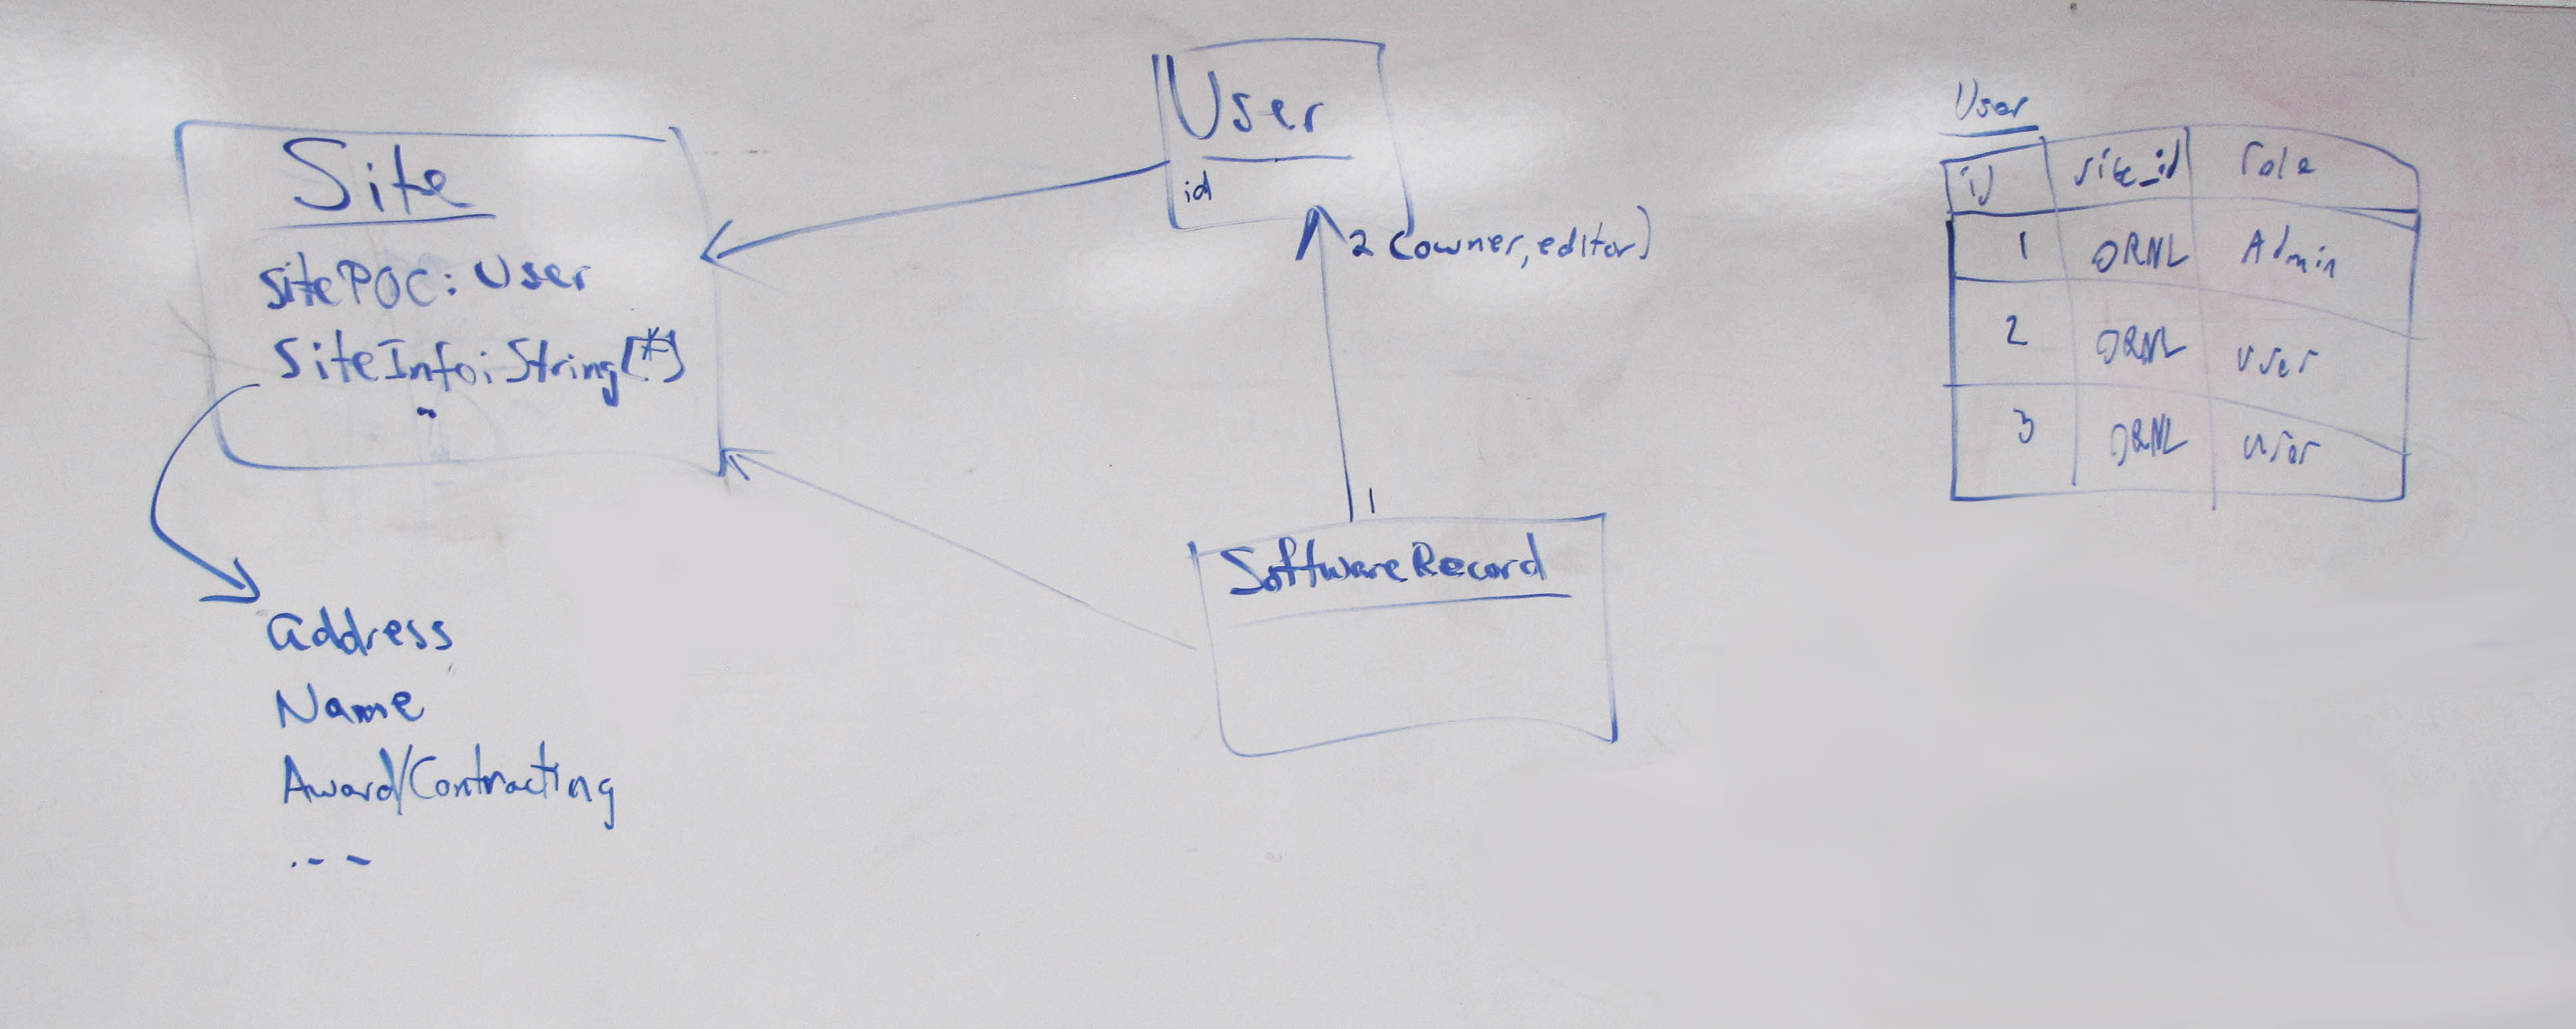 Site
sitePOC: User
SiteInfo: String[*]
address
Name
Award/Contracting
...
User
id
2 (owner, editor)
1
SoftwareRecord
User
id site_id role
1 ORNL Admin
2 ORNL user
3 ORNL user